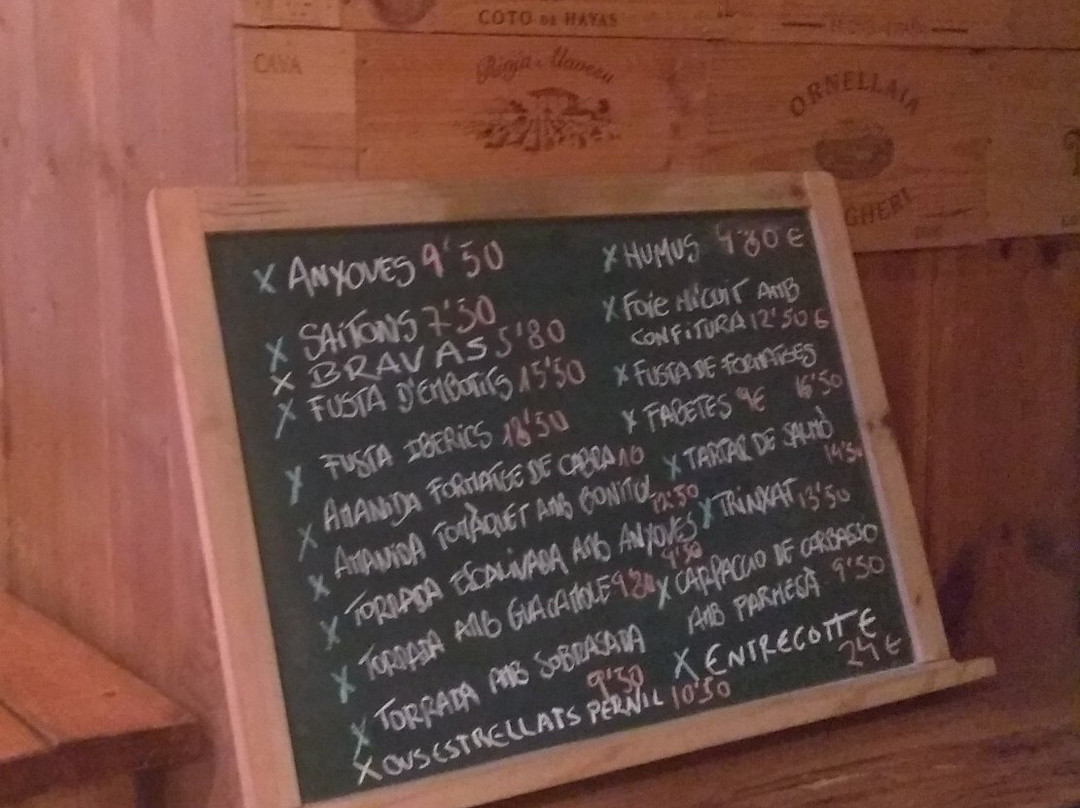 COTO DE HAYAS
CAVA
Rioja Alavesa
ORNELLAIA
GHERI
X ANXOVES 9'50
X SAITONS 7'50
X BRAVAS 5'80
X FUSTA D'EMBOTITS 15'50
X FUSTA IBERICS 18'50
X AMANIDA FORMATGE DE CABRA 10
X AMANIDA TOMÀQUET AMB BONITOL 12'50
X TORRADA ESCALIVADA AMB ANXOVES 9'50
X TORRADA AMB GUACAMOLE
X TORRADA AMB SOBRASADA
9'50
X OUS ESTRELLATS PERNIL 10'50
X HUMUS €
X FOIE MICUIT AMB
CONFITURA 12'50 €
X FUSTA DE FORMATGES
16'50
X FABETES 9€
X TARTAR DE SALMÓ
14'50
X TRINXAT 13'50
X CARPACCIO DE CARBASSÓ
AMB PARMESÀ 9'50
X ENTRECOTTE
24 €